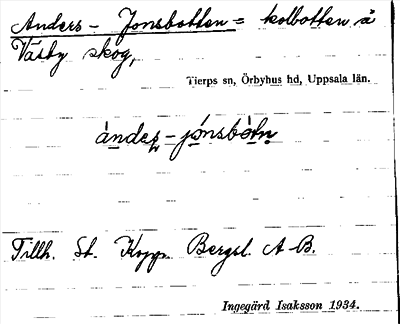 Anders - Jonsbotten = kolbotten å
Väsby skog,
Tierps sn, Örbyhus hd, Uppsala län.
àndeʂ-jónsbòtn̥
Tillh. St. Kopp. Bergsl. A-B.
Ingegärd Isaksson 1934.